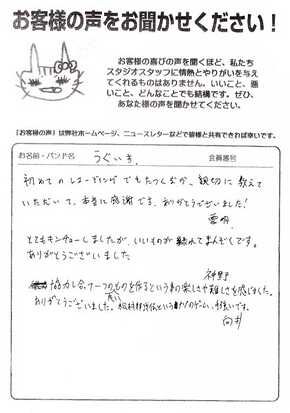 お客様の声をお聞かせください!
お客様の喜びの声を聞くほど、私たち
スタジオスタッフに情熱とやりがいを与え
てくれるものはありません。いいこと、悪
いこと、どんなことでも結構です。ぜひ、
あなた様の声を聞かせてください。
「お客様の声」は弊社ホームページ、ニュースレターなどで皆様と共有できれば幸いです。
お名前・バンド名 会員番号
初めてのレコーディングでもたつくなか、親切に教えて
いただいて、本当に感謝です。ありがとうございました!
とてもキンチョーしましたが、いいものが録れてまんぞくです。
ありがとうございました
神野
協力し合って一つのものを作るという事の楽しさや難しさを感じました。
ありがとうございました。
向井